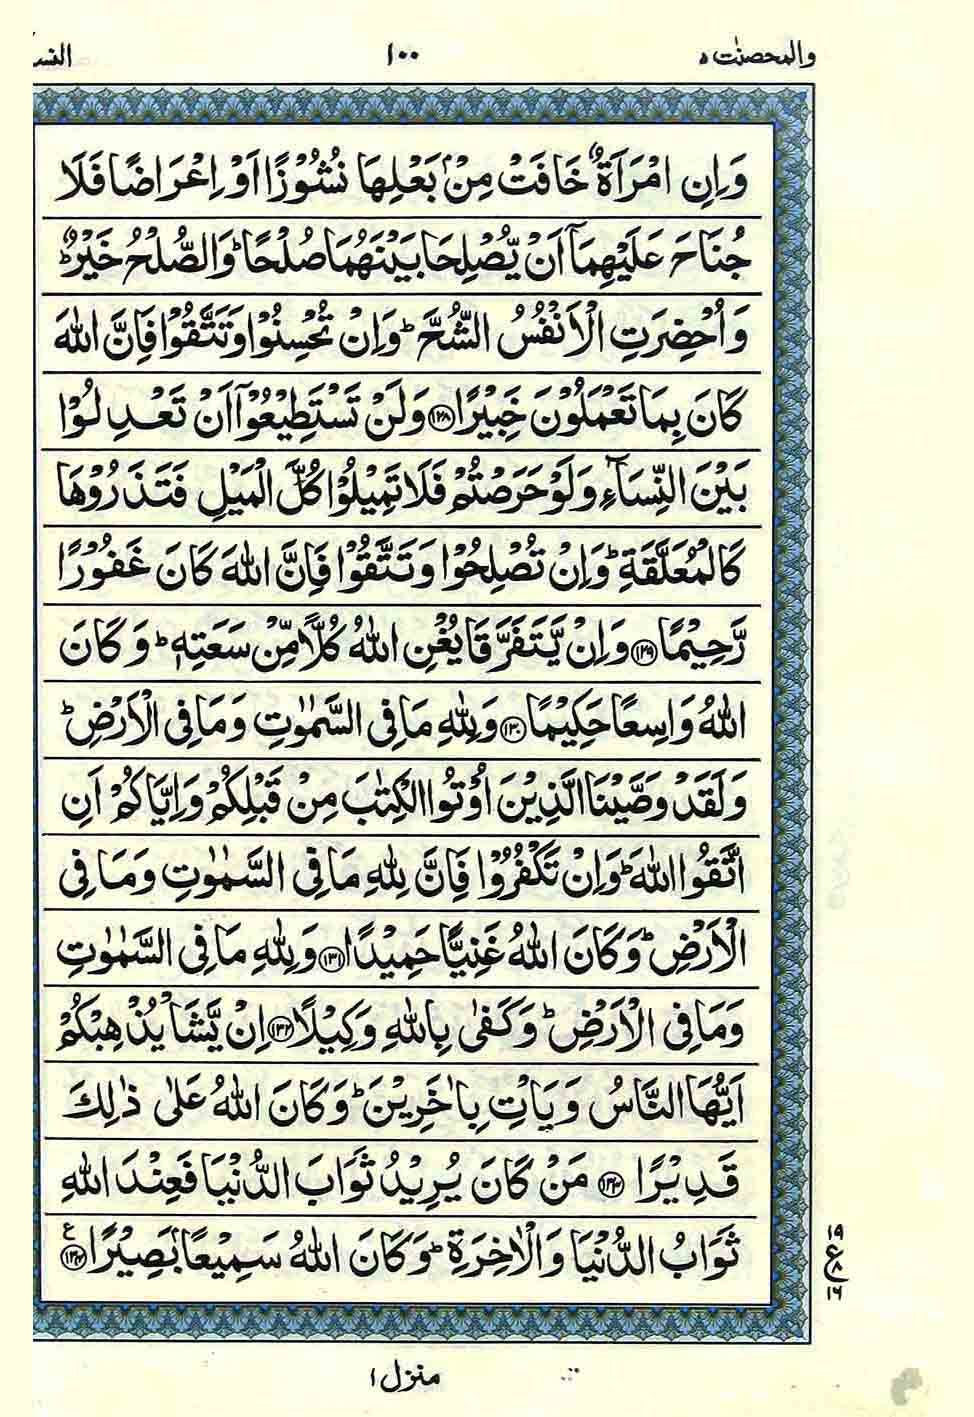 والمحصنٰت ٥ ١٠٠ النسا
وَاِنِ امْرَاَةٌ خَافَتْ مِنْۢ بَعْلِهَا نُشُوْزًا اَوْ اِعْرَاضًا فَلَا
جُنَاحَ عَلَيْهِمَاۤ اَنْ يُّصْلِحَا بَيْنَهُمَا صُلْحًا ؕ وَالصُّلْحُ خَيْرٌ ؕ
وَاُحْضِرَتِ الْاَنْفُسُ الشُّحَّ ؕ وَاِنْ تُحْسِنُوْا وَتَتَّقُوْا فَاِنَّ اللّٰهَ
كَانَ بِمَا تَعْمَلُوْنَ خَبِيْرًا ﴿١٢٨﴾ وَلَنْ تَسْتَطِيْعُوْۤا اَنْ تَعْدِلُوْا
بَيْنَ النِّسَآءِ وَلَوْ حَرَصْتُمْ فَلَا تَمِيْلُوْا كُلَّ الْمَيْلِ فَتَذَرُوْهَا
كَالْمُعَلَّقَةِ ؕ وَاِنْ تُصْلِحُوْا وَتَتَّقُوْا فَاِنَّ اللّٰهَ كَانَ غَفُوْرًا
رَّحِيْمًا ﴿١٢٩﴾ وَاِنْ يَّتَفَرَّقَا يُغْنِ اللّٰهُ كُلًّا مِّنْ سَعَتِهٖ ؕ وَكَانَ
اللّٰهُ وَاسِعًا حَكِيْمًا ﴿١٣٠﴾ وَلِلّٰهِ مَا فِى السَّمٰوٰتِ وَمَا فِى الْاَرْضِ ؕ
وَلَقَدْ وَصَّيْنَا الَّذِيْنَ اُوْتُوا الْكِتٰبَ مِنْ قَبْلِكُمْ وَاِيَّاكُمْ اَنِ
اتَّقُوا اللّٰهَ ؕ وَاِنْ تَكْفُرُوْا فَاِنَّ لِلّٰهِ مَا فِى السَّمٰوٰتِ وَمَا فِى
الْاَرْضِ ؕ وَكَانَ اللّٰهُ غَنِيًّا حَمِيْدًا ﴿١٣١﴾ وَلِلّٰهِ مَا فِى السَّمٰوٰتِ
وَمَا فِى الْاَرْضِ ؕ وَكَفٰى بِاللّٰهِ وَكِيْلًا ﴿١٣٢﴾ اِنْ يَّشَاْ يُذْهِبْكُمْ
اَيُّهَا النَّاسُ وَيَاْتِ بِاٰخَرِيْنَ ؕ وَكَانَ اللّٰهُ عَلٰى ذٰلِكَ
قَدِيْرًا ﴿١٣٣﴾ مَنْ كَانَ يُرِيْدُ ثَوَابَ الدُّنْيَا فَعِنْدَ اللّٰهِ
ثَوَابُ الدُّنْيَا وَالْاٰخِرَةِ ؕ وَكَانَ اللّٰهُ سَمِيْعًۢا بَصِيْرًا ﴿١٣٤﴾ ع
١٩
ع ٨
١٦
منزل ١